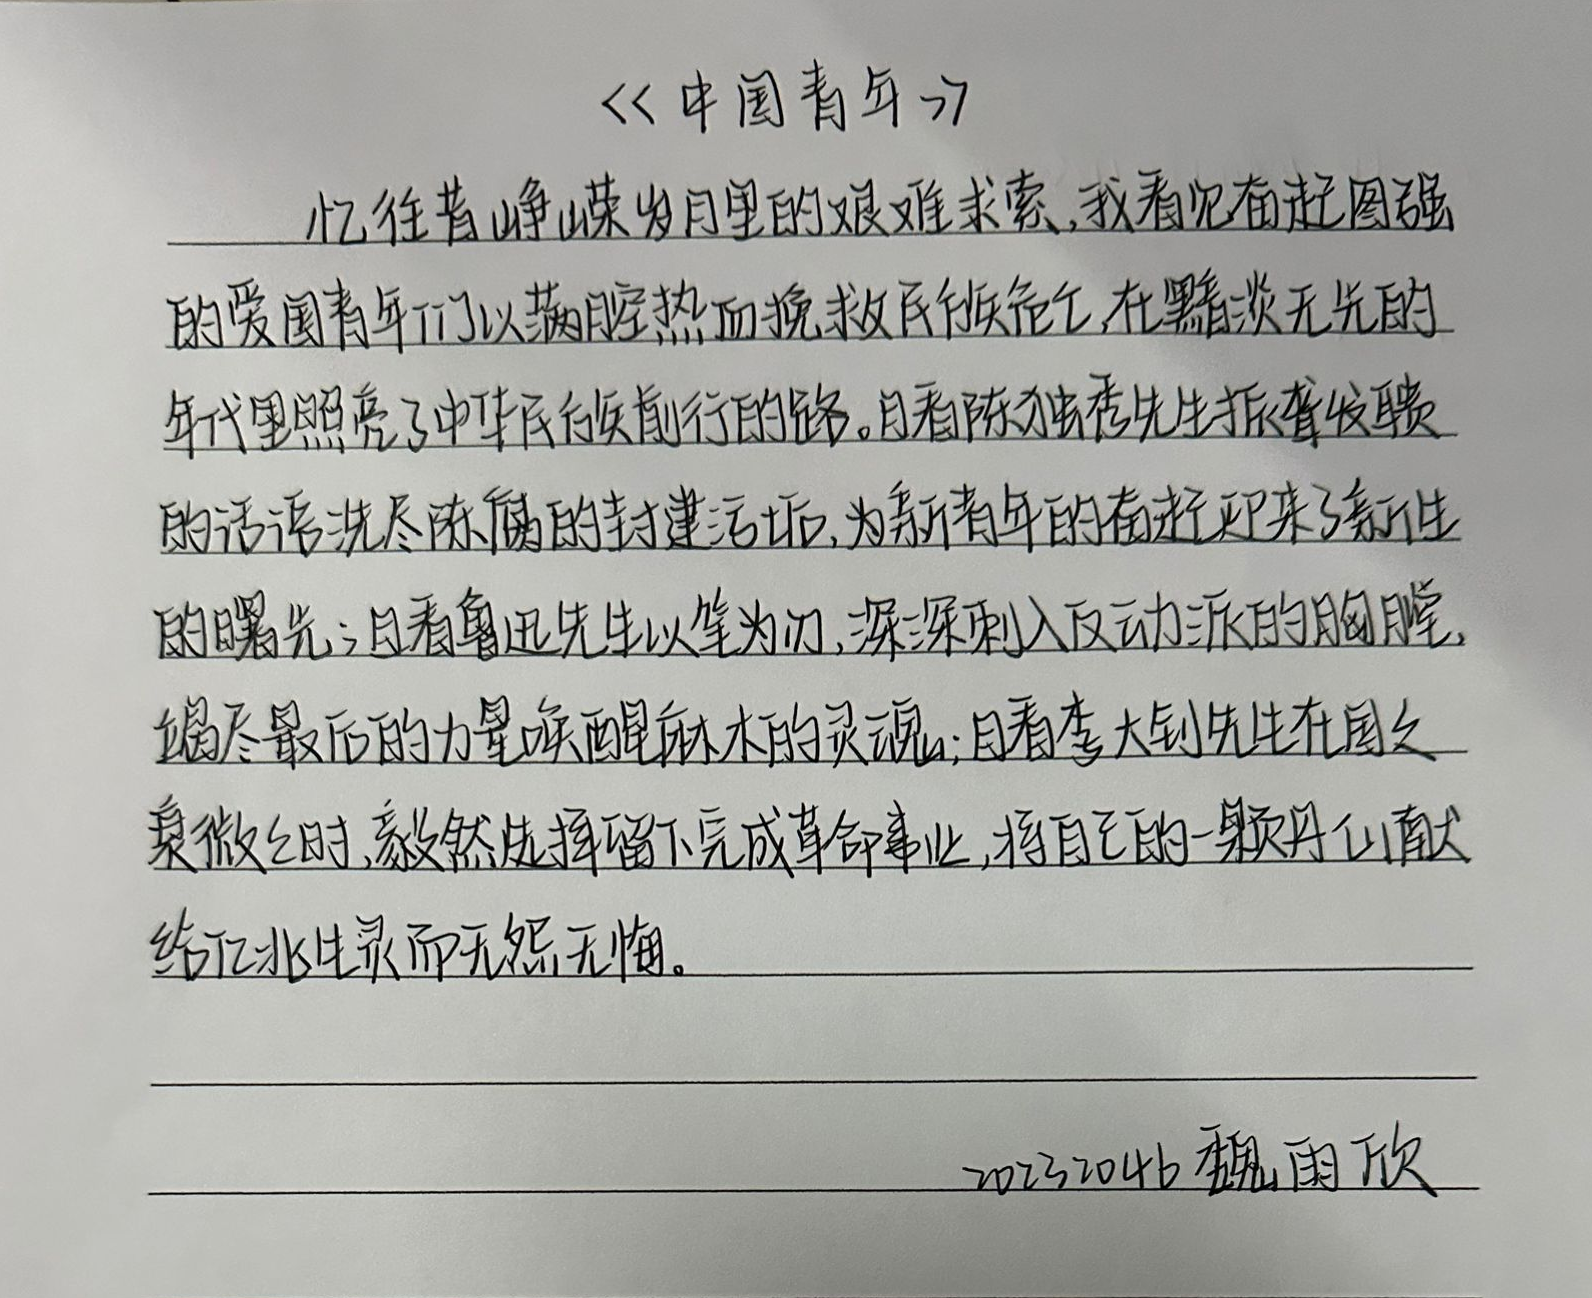 《中国青年》
忆往昔峥嵘岁月里的艰难求索,我看见奋起图强
的爱国青年们以满腔热血挽救民族危亡,在黯淡无光的
年代里照亮了中华民族前行的路。且看陈独秀先生振聋发聩
的话语洗尽陈腐的封建污垢,为新青年的奋起迎来了新生
的曙光;且看鲁迅先生以笔为刃,深深刺入反动派的胸膛,
竭尽最后的力量唤醒麻木的灵魂;且看李大钊先生在国之
衰微之时,毅然选择留下完成革命事业,将自己的一颗丹心献
给亿兆生灵而无怨无悔。
20232046 魏雨欣